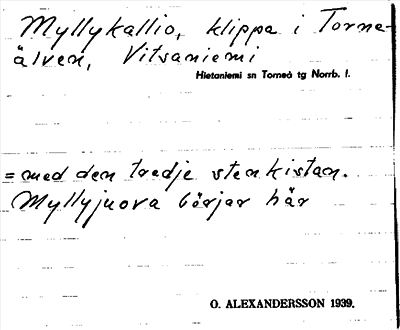 Myllykallio, klippa i Torne-
älven, Vitsaniemi
Hietaniemi sn Torneå tg Norrb. l.
= med den tredje stenkistan.
Myllyjuova börjar här
O. ALEXANDERSSON 1939.